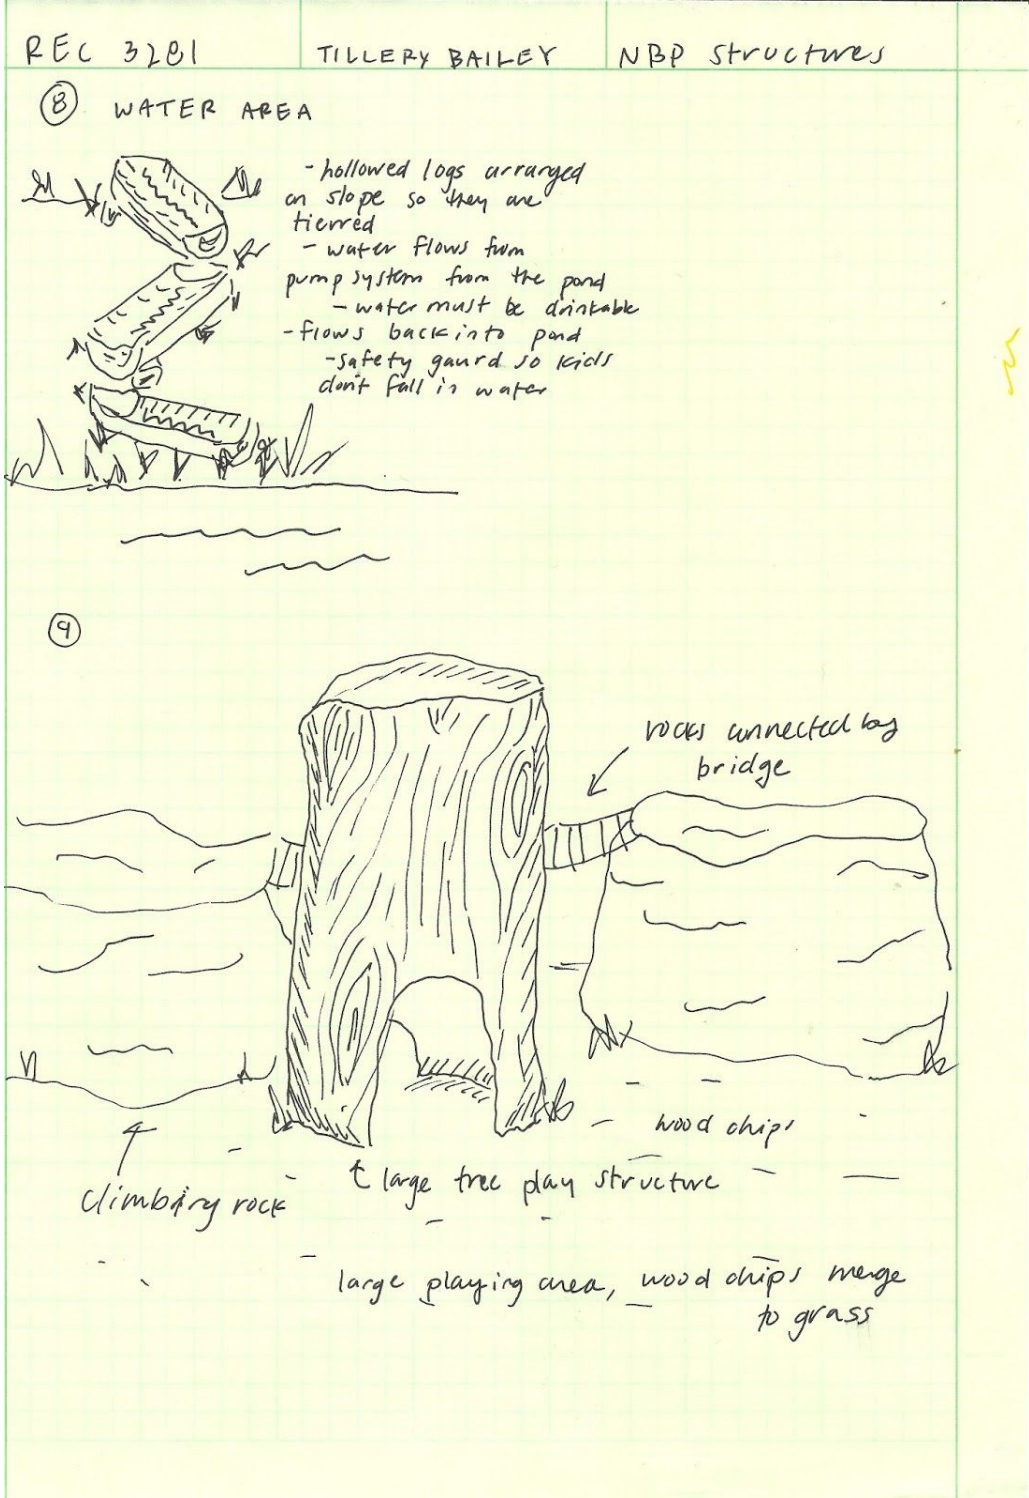 REC 3281 TILLERY BAILEY NBP Structures
8 WATER AREA
- hollowed logs arranged
on slope so they are
tierred
- water flows from
pump system from the pond
- water must be drinkable
- flows back into pond
- safety gaurd so kids
don't fall in water
9
rocks connected by
bridge
wood chips
large tree play structure
climbing rock
large playing area, wood chips merge
to grass